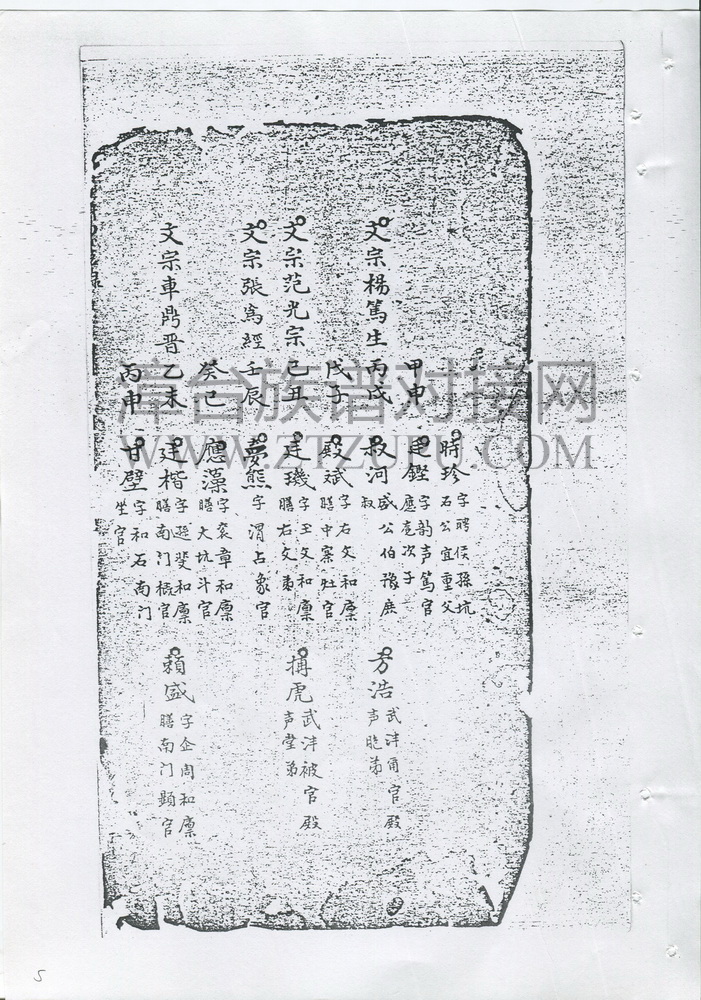 時珍 字聘侯孫坑
石公宜重父
甲申
建鏗 字韵声篤官
應奎次子
文宗楊篤生 丙戌
叔河 盛公伯豫庶
叔
方浩 武沣甯官殿
声聴弟
戊子
殿斌 字右文和廩
膳中寨灶官
文宗范光宗 己丑
廷璣 字玉文和廩
膳右文弟
搏虎 武沣被官殿
声堂弟
文宗張為經 壬辰
夢熊 字渭占象官
癸巳
應藻 字袞章和廩
膳大坑斗官
文宗車鼎晋 乙未
廷楷 字遜斐和廩
膳南门概官
賴盛 字企周和廩
膳南门顕官
丙申
甘壁 字和石南门
坐官
漳台族谱对接网
WWW.ZTZUPU.COM
5